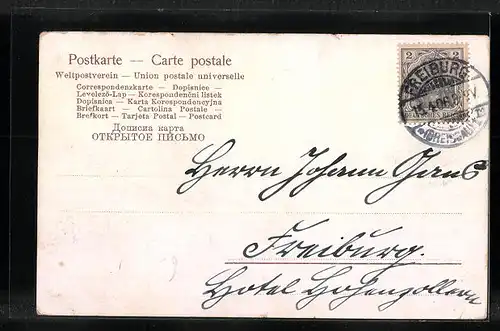 Postkarte — Carte postale
Weltpostverein — Union postale universelle
Correspondenzkarte — Dopisnice —
Levelező-Lap — Korespondenční lístek
Dopisnica — Karta Korespondencyjna
Briefkaart — Cartolina Postale —
Brefkort — Tarjeta Postal — Postcard
Дописна карта
ОТКРЫТОЕ ПИСЬМО
2 2
FREIBURG
(BREISGAU)
Herrn Johann Gans
Freiburg.
Hotel Hohenzollern